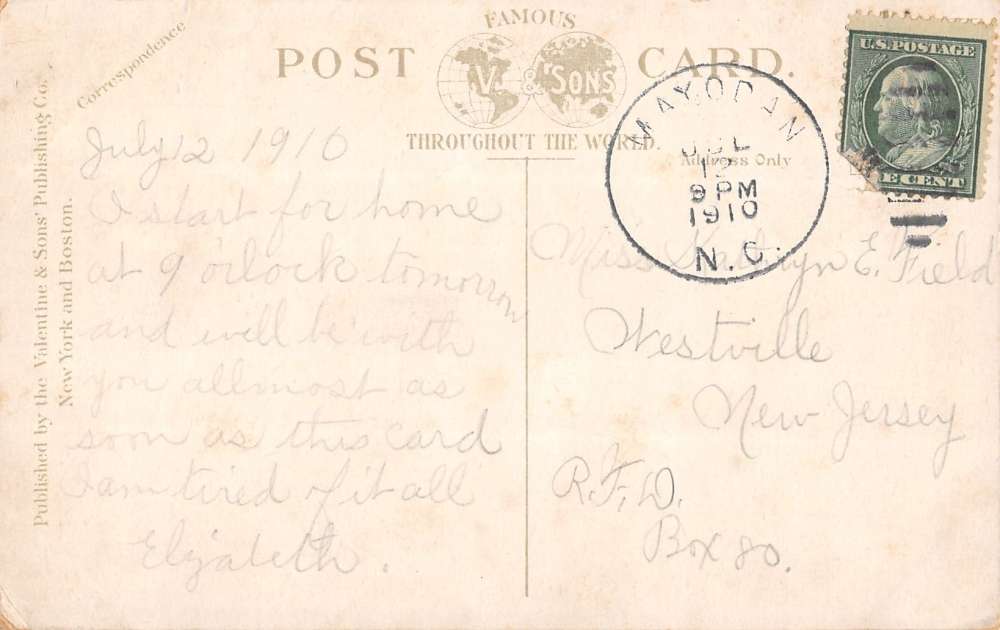 Correspondence
FAMOUS
POST CARD.
V. & SONS
THROUGHOUT THE WORLD.
Address Only
Published by the Valentine & Sons' Publishing Co.
New York and Boston.
U.S. POSTAGE
E CENT
MAYODAN
JUL
12
9 PM
1910
N.C.
July 12 1910
I start for home
at 9 o'clock tomorrow
and will be with
you allmost as
soon as this card
I am tired of it all
Elizabeth.
Miss Kathryn E. Field
Westville
New Jersey
R.F.D.
Box 80.